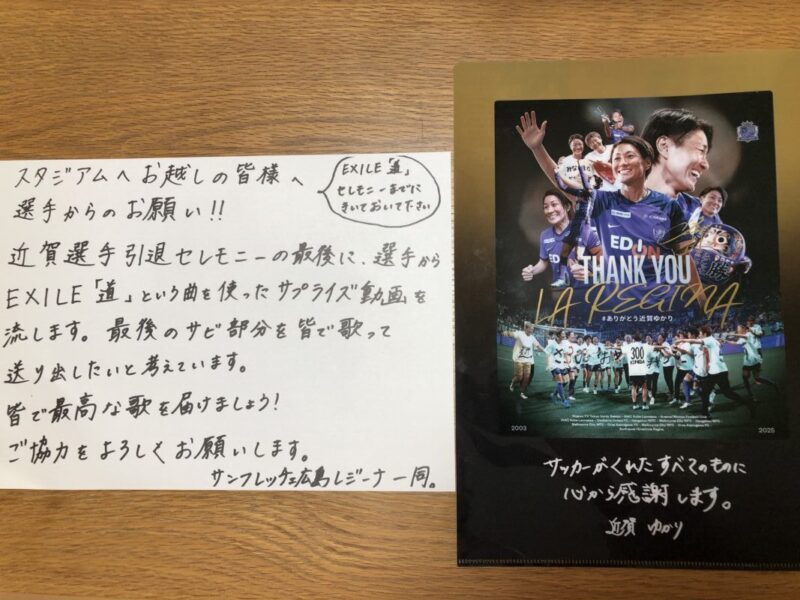 スタジアムへお越しの皆様へ
選手からのお願い!!
EXILE「道」
セレモニーまでに
きいておいて下さい
近賀選手引退セレモニーの最後に、選手から
EXILE「道」という曲を使ったサプライズ動画を
流します。最後のサビ部分を皆で歌って
送り出したいと考えています。
皆で最高な歌を届けましょう!
ご協力をよろしくお願いします。
サンフレッチェ広島レジーナ一同。
EDION
THANK YOU
LA REGINA
#ありがとう近賀ゆかり
300
2003
2025
サッカーがくれたすべてのものに
心から感謝します。
近賀 ゆかり